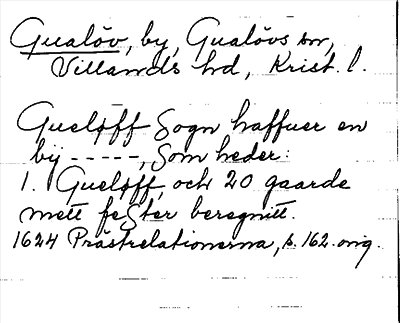 Gualöv, by, Gualövs sn,
Villands hd, Krist. l.
Gueløff Sogn haffuer en
bij -----, Som heder:
1. Gueløff, och 20 gaarde
mett fester beregnitt.
1624 Prästrelationerna, s. 162. orig.